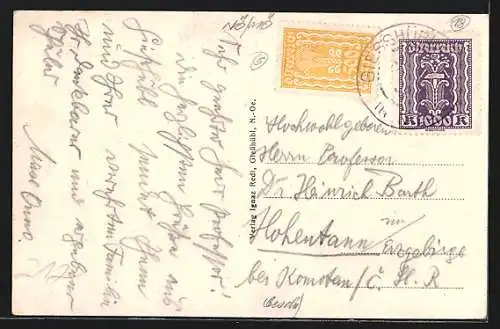 Sehr geehrter Herr Professor!
Die herzlichsten Grüße aus
sendet Ihnen
und Ihrer verehrten Familie
Ihr dankbarer und ergebener
Schüler
Österreich
Österreich
1000
K K
Verlag Ignaz Redl, Gießhübl, N.-Oe.
Hochwohlgeboren
Herrn Professor
Dr Heinrich Barth
Hohentann im
Erzgebirge
bei Komotau / Č. S. R